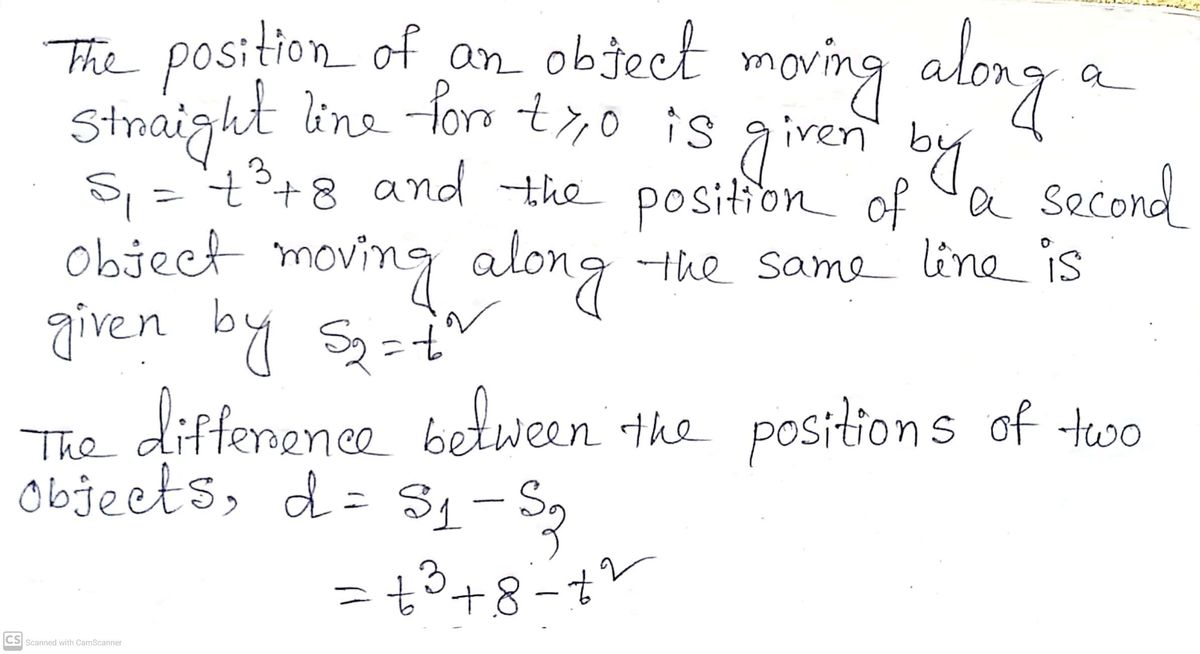 The position of an object moving along a
straight line for t ≥ 0 is given by
S₁ = t³+8 and the position of a second
object moving along the same line is
given by S₂ = t²
The difference between the positions of two
objects, d = S₁ - S₂
= t³+8-t²
CS Scanned with CamScanner